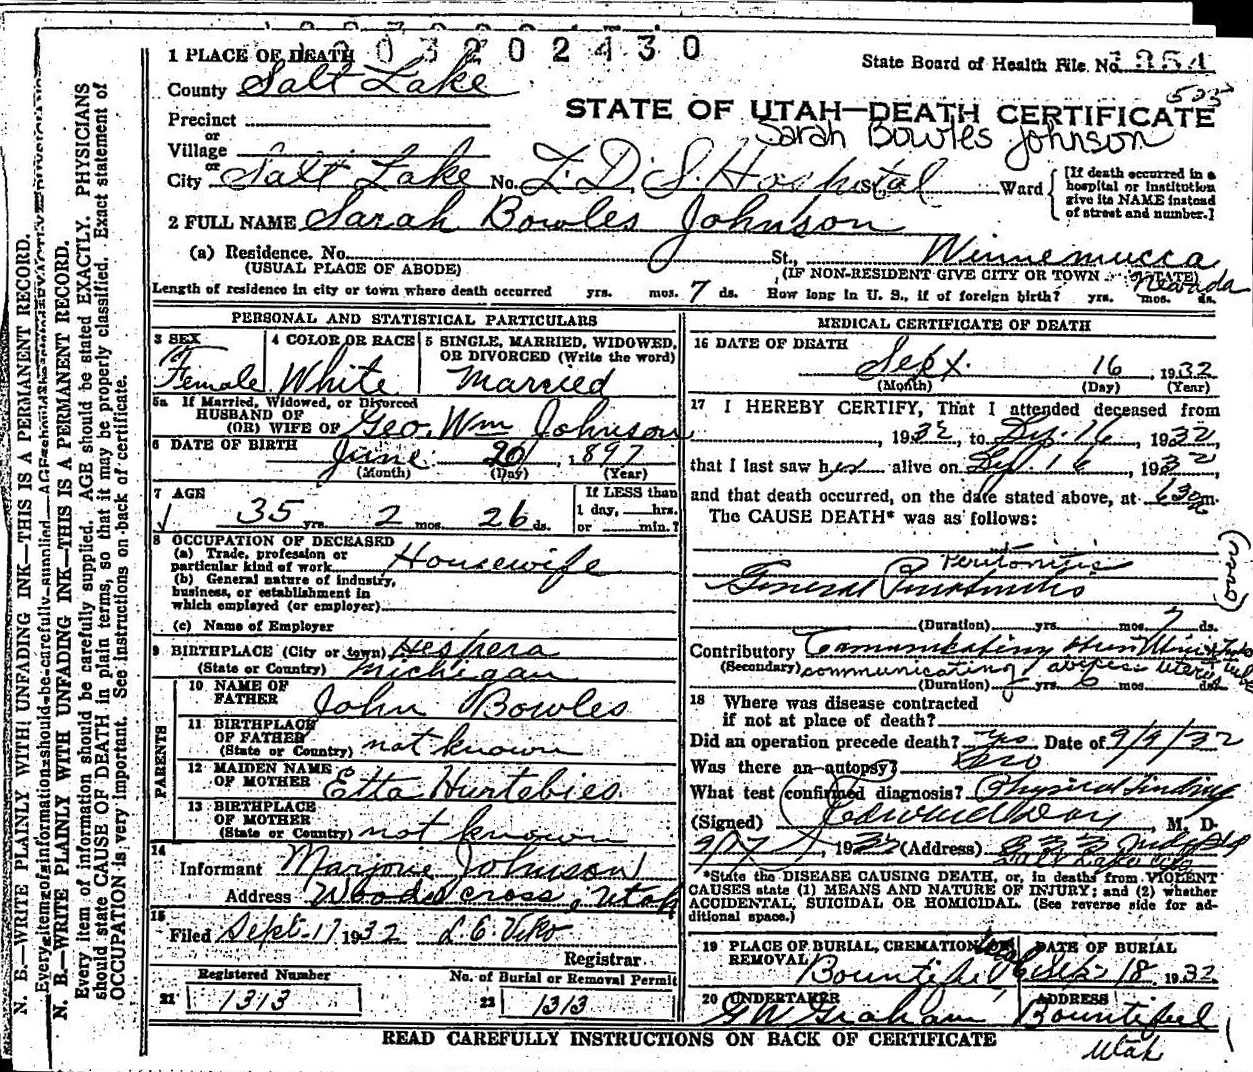 1 PLACE OF DEATH
203202430
State Board of Health File No. 1354
County Salt Lake
505
STATE OF UTAH—DEATH CERTIFICATE
Precinct
Sarah Bowles Johnson
or
Village
or
City Salt Lake No. L. D. S. Hospital Ward
[If death occurred in a hospital or institution give its NAME instead of street and number.]
2 FULL NAME Sarah Bowles Johnson
(a) Residence. No. St., Winnemucca
(USUAL PLACE OF ABODE) (IF NON-RESIDENT GIVE CITY OR TOWN STATE) Nevada
Length of residence in city or town where death occurred yrs. mos. 7 ds. How long in U. S., if of foreign birth? yrs. mos. ds.
PERSONAL AND STATISTICAL PARTICULARS
3 SEX
Female
4 COLOR OR RACE
White
5 SINGLE, MARRIED, WIDOWED, OR DIVORCED (Write the word)
Married
5a If Married, Widowed, or Divorced
HUSBAND OF
(OR) WIFE OF Geo. Wm Johnson
6 DATE OF BIRTH June 20 1897
(Month) (Day) (Year)
7 AGE
35 yrs. 2 mos. 26 ds.
If LESS than
1 day, hrs.
or min.?
8 OCCUPATION OF DECEASED
(a) Trade, profession or
particular kind of work Housewife
(b) General nature of industry,
business, or establishment in
which employed (or employer)
(c) Name of Employer
9 BIRTHPLACE (City or town) Hespera
(State or Country) Michigan
PARENTS
10 NAME OF
FATHER John Bowles
11 BIRTHPLACE
OF FATHER
(State or Country) not known
12 MAIDEN NAME
OF MOTHER Etta Hurtebies
13 BIRTHPLACE
OF MOTHER
(State or Country) not known
14
Informant Marjorie Johnson
Address Woods cross, Utah
15
Filed Sept-17 1932 L. E. Viko
Registrar
Registered Number
21 1313
No. of Burial or Removal Permit
22 1313
MEDICAL CERTIFICATE OF DEATH
16 DATE OF DEATH
Sept. 16, 1932
(Month) (Day) (Year)
17 I HEREBY CERTIFY, That I attended deceased from
, 1932, to Sep. 16, 1932,
that I last saw her alive on Sep. 16, 1932
and that death occurred, on the date stated above, at 630 m.
The CAUSE DEATH* was as follows:
Peritonitis
General Peritonitis
(Duration) yrs. mos. 7 ds.
Contributory
(Secondary) communicating abscess uterus tube
(Duration) yrs. 6 mos. ds.
18 Where was disease contracted
if not at place of death?
Did an operation precede death? yes Date of 9/9/32
Was there an autopsy? no
What test confirmed diagnosis? Physical finding
(Signed) Edward Day, M. D.
9/17, 1932 (Address) 333 Judge Bldg
Salt Lake City
*State the DISEASE CAUSING DEATH, or, in deaths from VIOLENT
CAUSES state (1) MEANS AND NATURE OF INJURY; and (2) whether
ACCIDENTAL, SUICIDAL OR HOMICIDAL. (See reverse side for ad-
ditional space.)
19 PLACE OF BURIAL, CREMATION OR
REMOVAL
Bountiful
DATE OF BURIAL
Sep 18, 1932
20 UNDERTAKER
G W Graham
ADDRESS
Bountiful
Utah
READ CAREFULLY INSTRUCTIONS ON BACK OF CERTIFICATE
N. B.—WRITE PLAINLY WITH UNFADING INK—THIS IS A PERMANENT RECORD.
N. B.—WRITE PLAINLY WITH UNFADING INK—THIS IS A PERMANENT RECORD.
Every item of information should be carefully supplied. AGE should be stated EXACTLY. PHYSICIANS
should state CAUSE OF DEATH in plain terms, so that it may be properly classified. Exact statement of
OCCUPATION is very important. See instructions on back of certificate.